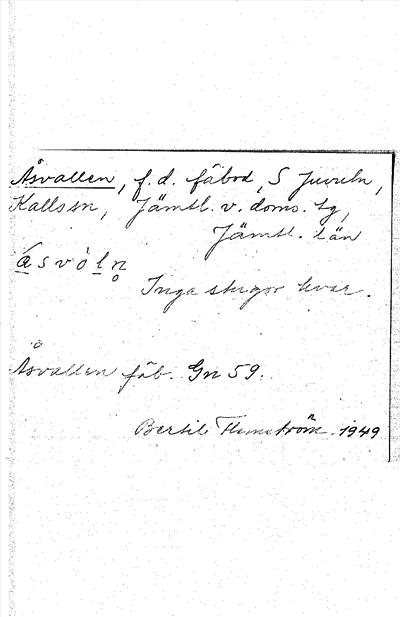 Åsvallen, f.d. fäbod, S Juveln,
Kalls sn, Jämtl. v. doms. tg,
Jämtl. län
å s v ò l n̥
Inga stugor kvar.
Åsvallen fäb. Gn 59.
Bertil Flemström 1949